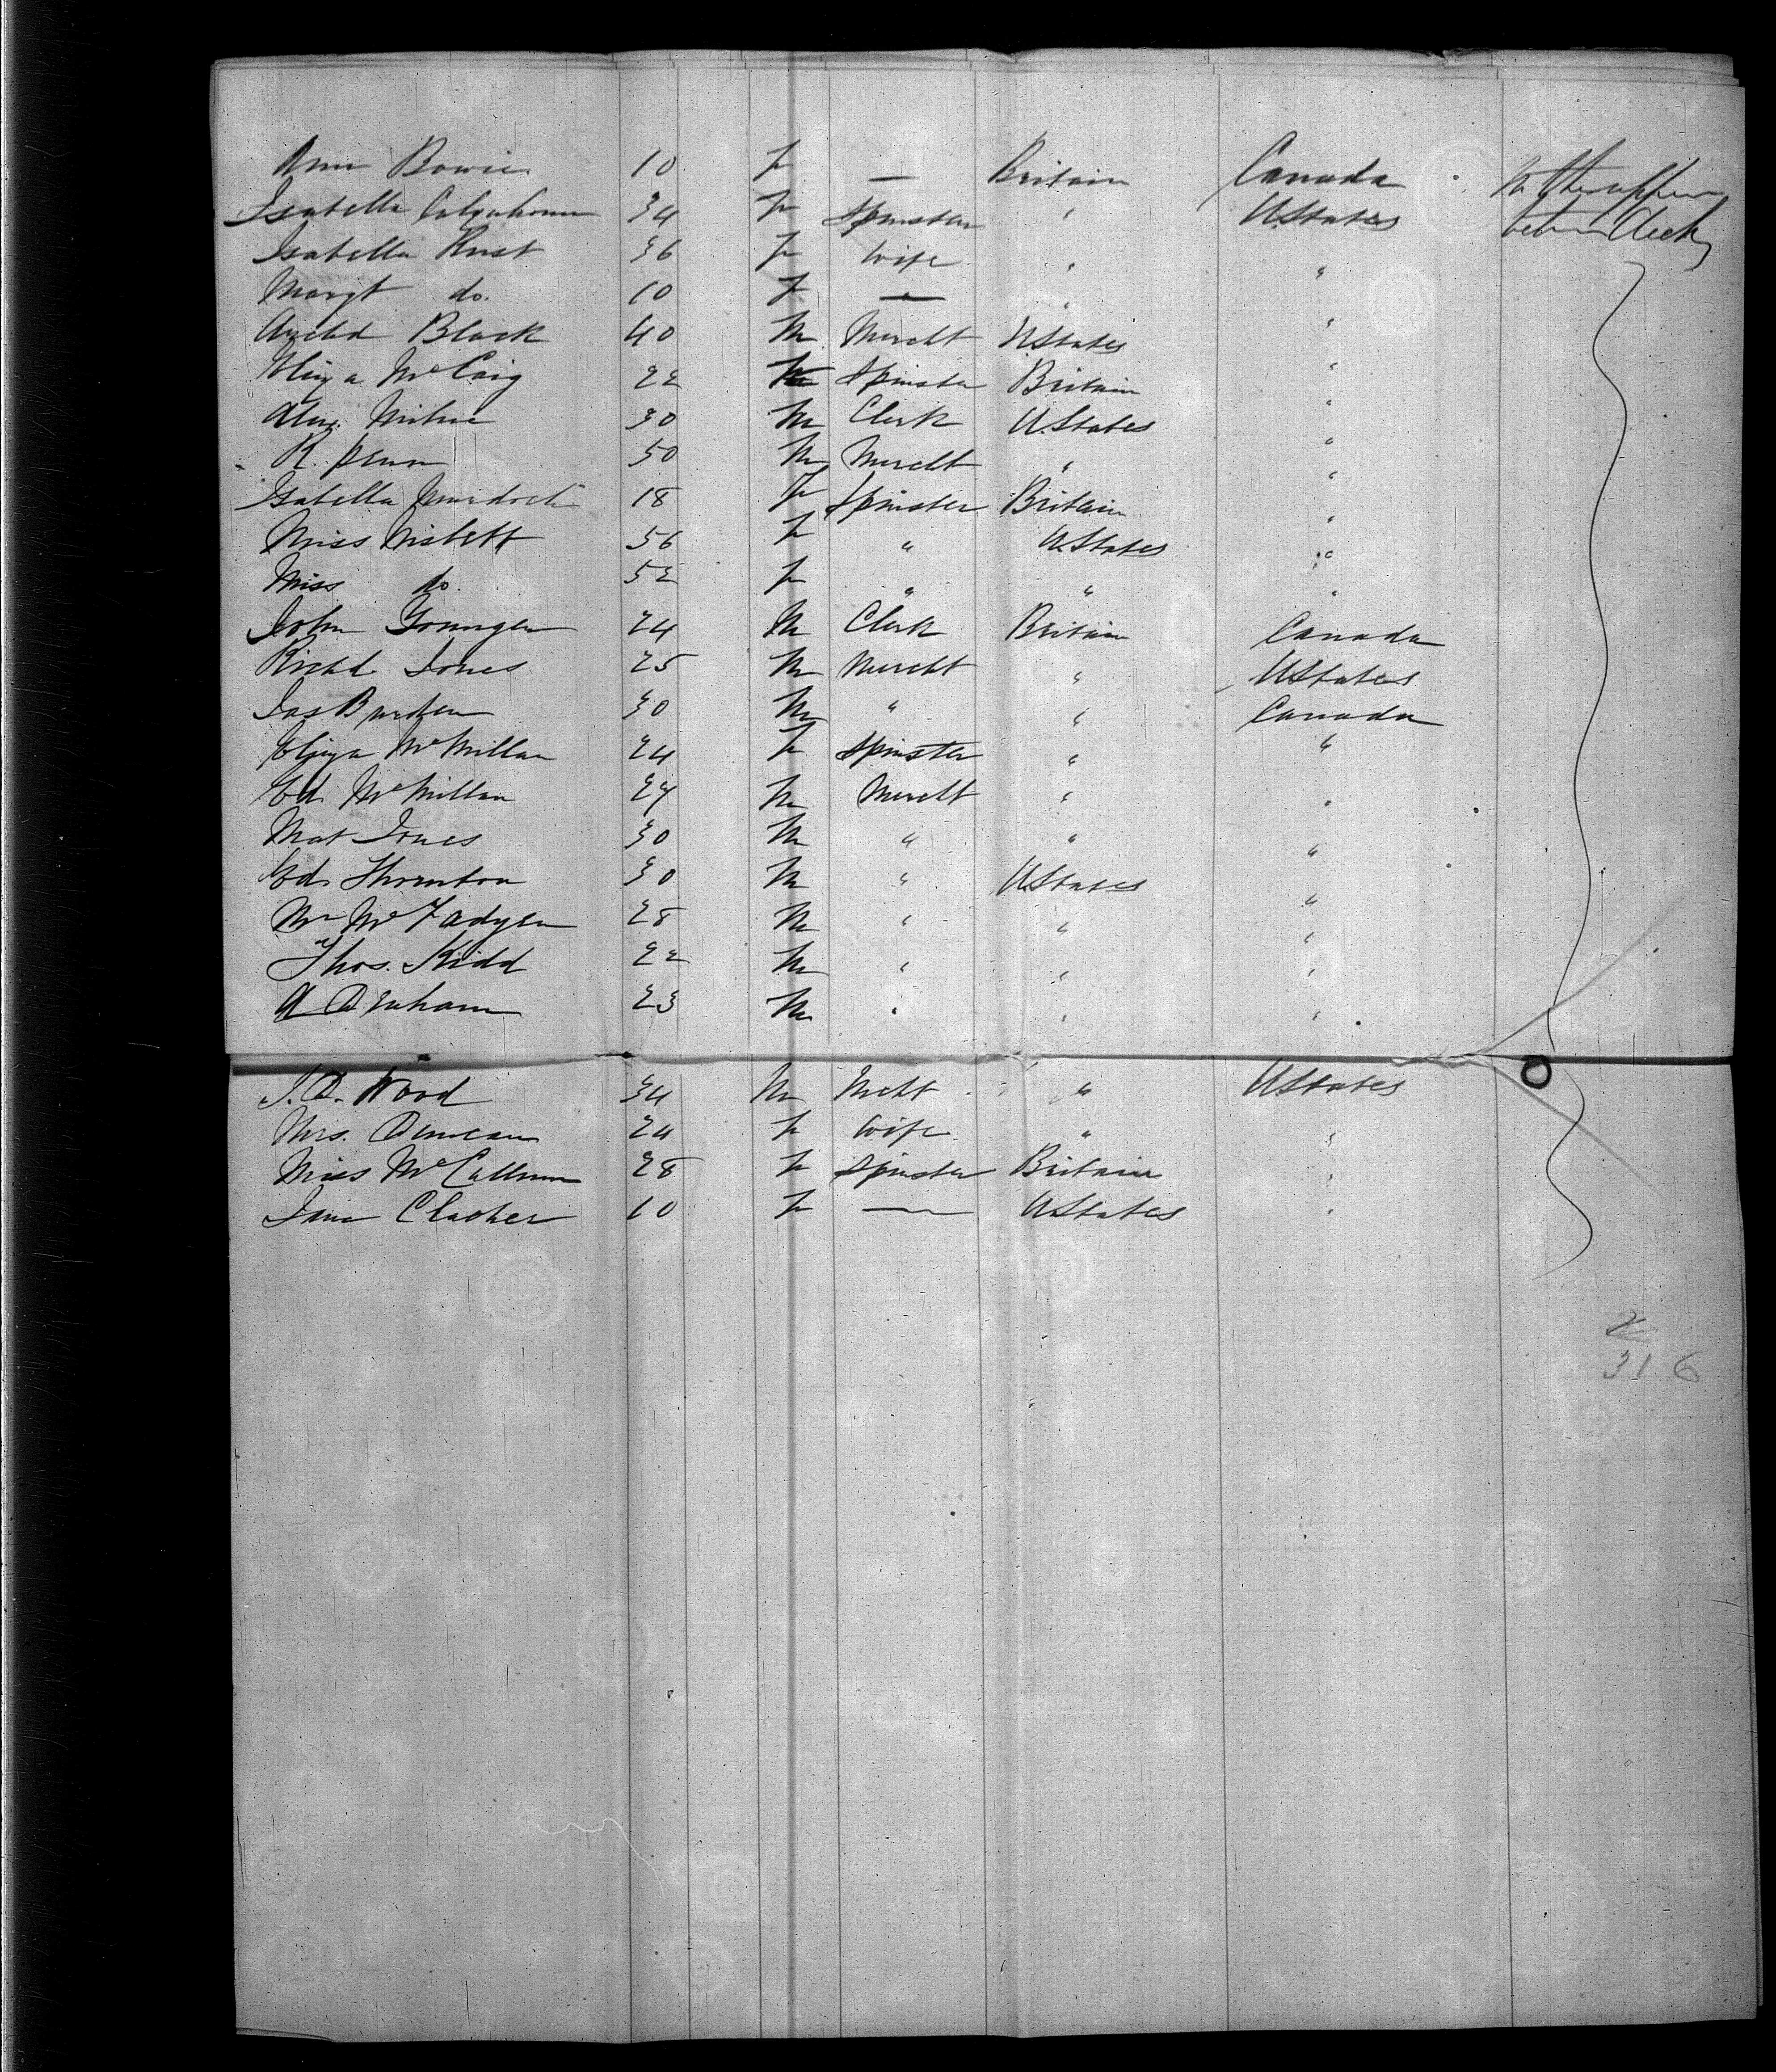 Ann Bowie 10 F — Britain Canada In the upper
Isabella Colquhoun 34 F Spinster " UStates between decks
Isabella Rust 36 F Wife " "
Margt do. 10 F — " "
Archd Black 40 M Mercht UStates "
Eliza McCaig 22 Spinster Britain "
Alex. Milne 30 M Clerk UStates "
R. Penn 50 M Mercht " "
Isabella Murdoch 18 F Spinster Britain "
Miss Nisbett 56 F " UStates "
Miss do. 52 F " " "
John Younger 24 M Clerk Britain Canada
Richd Jones 25 M Mercht " UStates
Jas Burden 30 M " " Canada
Eliza McMillan 24 F Spinster " "
Ed. McMillan 27 M Mercht " "
Mat Jones 30 M " " "
Ed. Thornton 30 M " UStates "
Mr McFadyen 28 M " " "
Thos. Kidd 22 M " " "
A Denham 23 M " " "
J. D. Wood 34 M Mcht " UStates
Mrs. Duncan 24 F Wife " "
Miss McCallum 28 F Spinster Britain "
Jane Clacher 10 F — UStates "
316